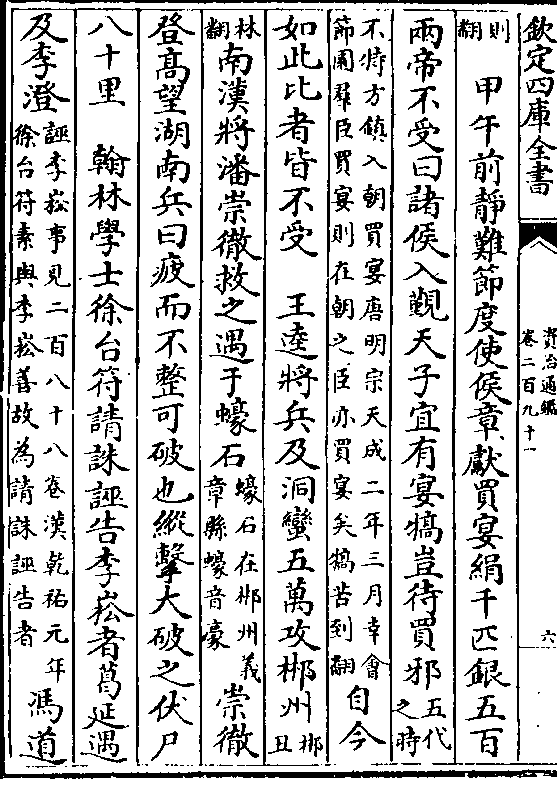 欽定四庫全書
資治通鑑
卷二百九十一
六
則翻 甲午前靜難節度使侯章獻買宴絹千匹銀五百
兩帝不受曰諸侯入覲天子宜有宴犒豈待買邪五代之時
不特方鎮入朝買宴唐明宗天成二年三月幸會節園羣臣買宴則在朝之臣亦買宴矣犒苦到翻自今
如此比者皆不受 王逵將兵及洞蠻五萬攻郴州郴丑
林翻南漢將潘崇徹救之遇于蠔石蠔石在郴州義章縣蠔音豪崇徹
登高望湖南兵曰疲而不整可破也縱擊大破之伏尸
八十里 翰林學士徐台符請誅誣告李崧者葛延遇
及李澄誣李崧事見二百八十八卷漢乾祐元年徐台符素與李崧善故為請誅誣告者馮道